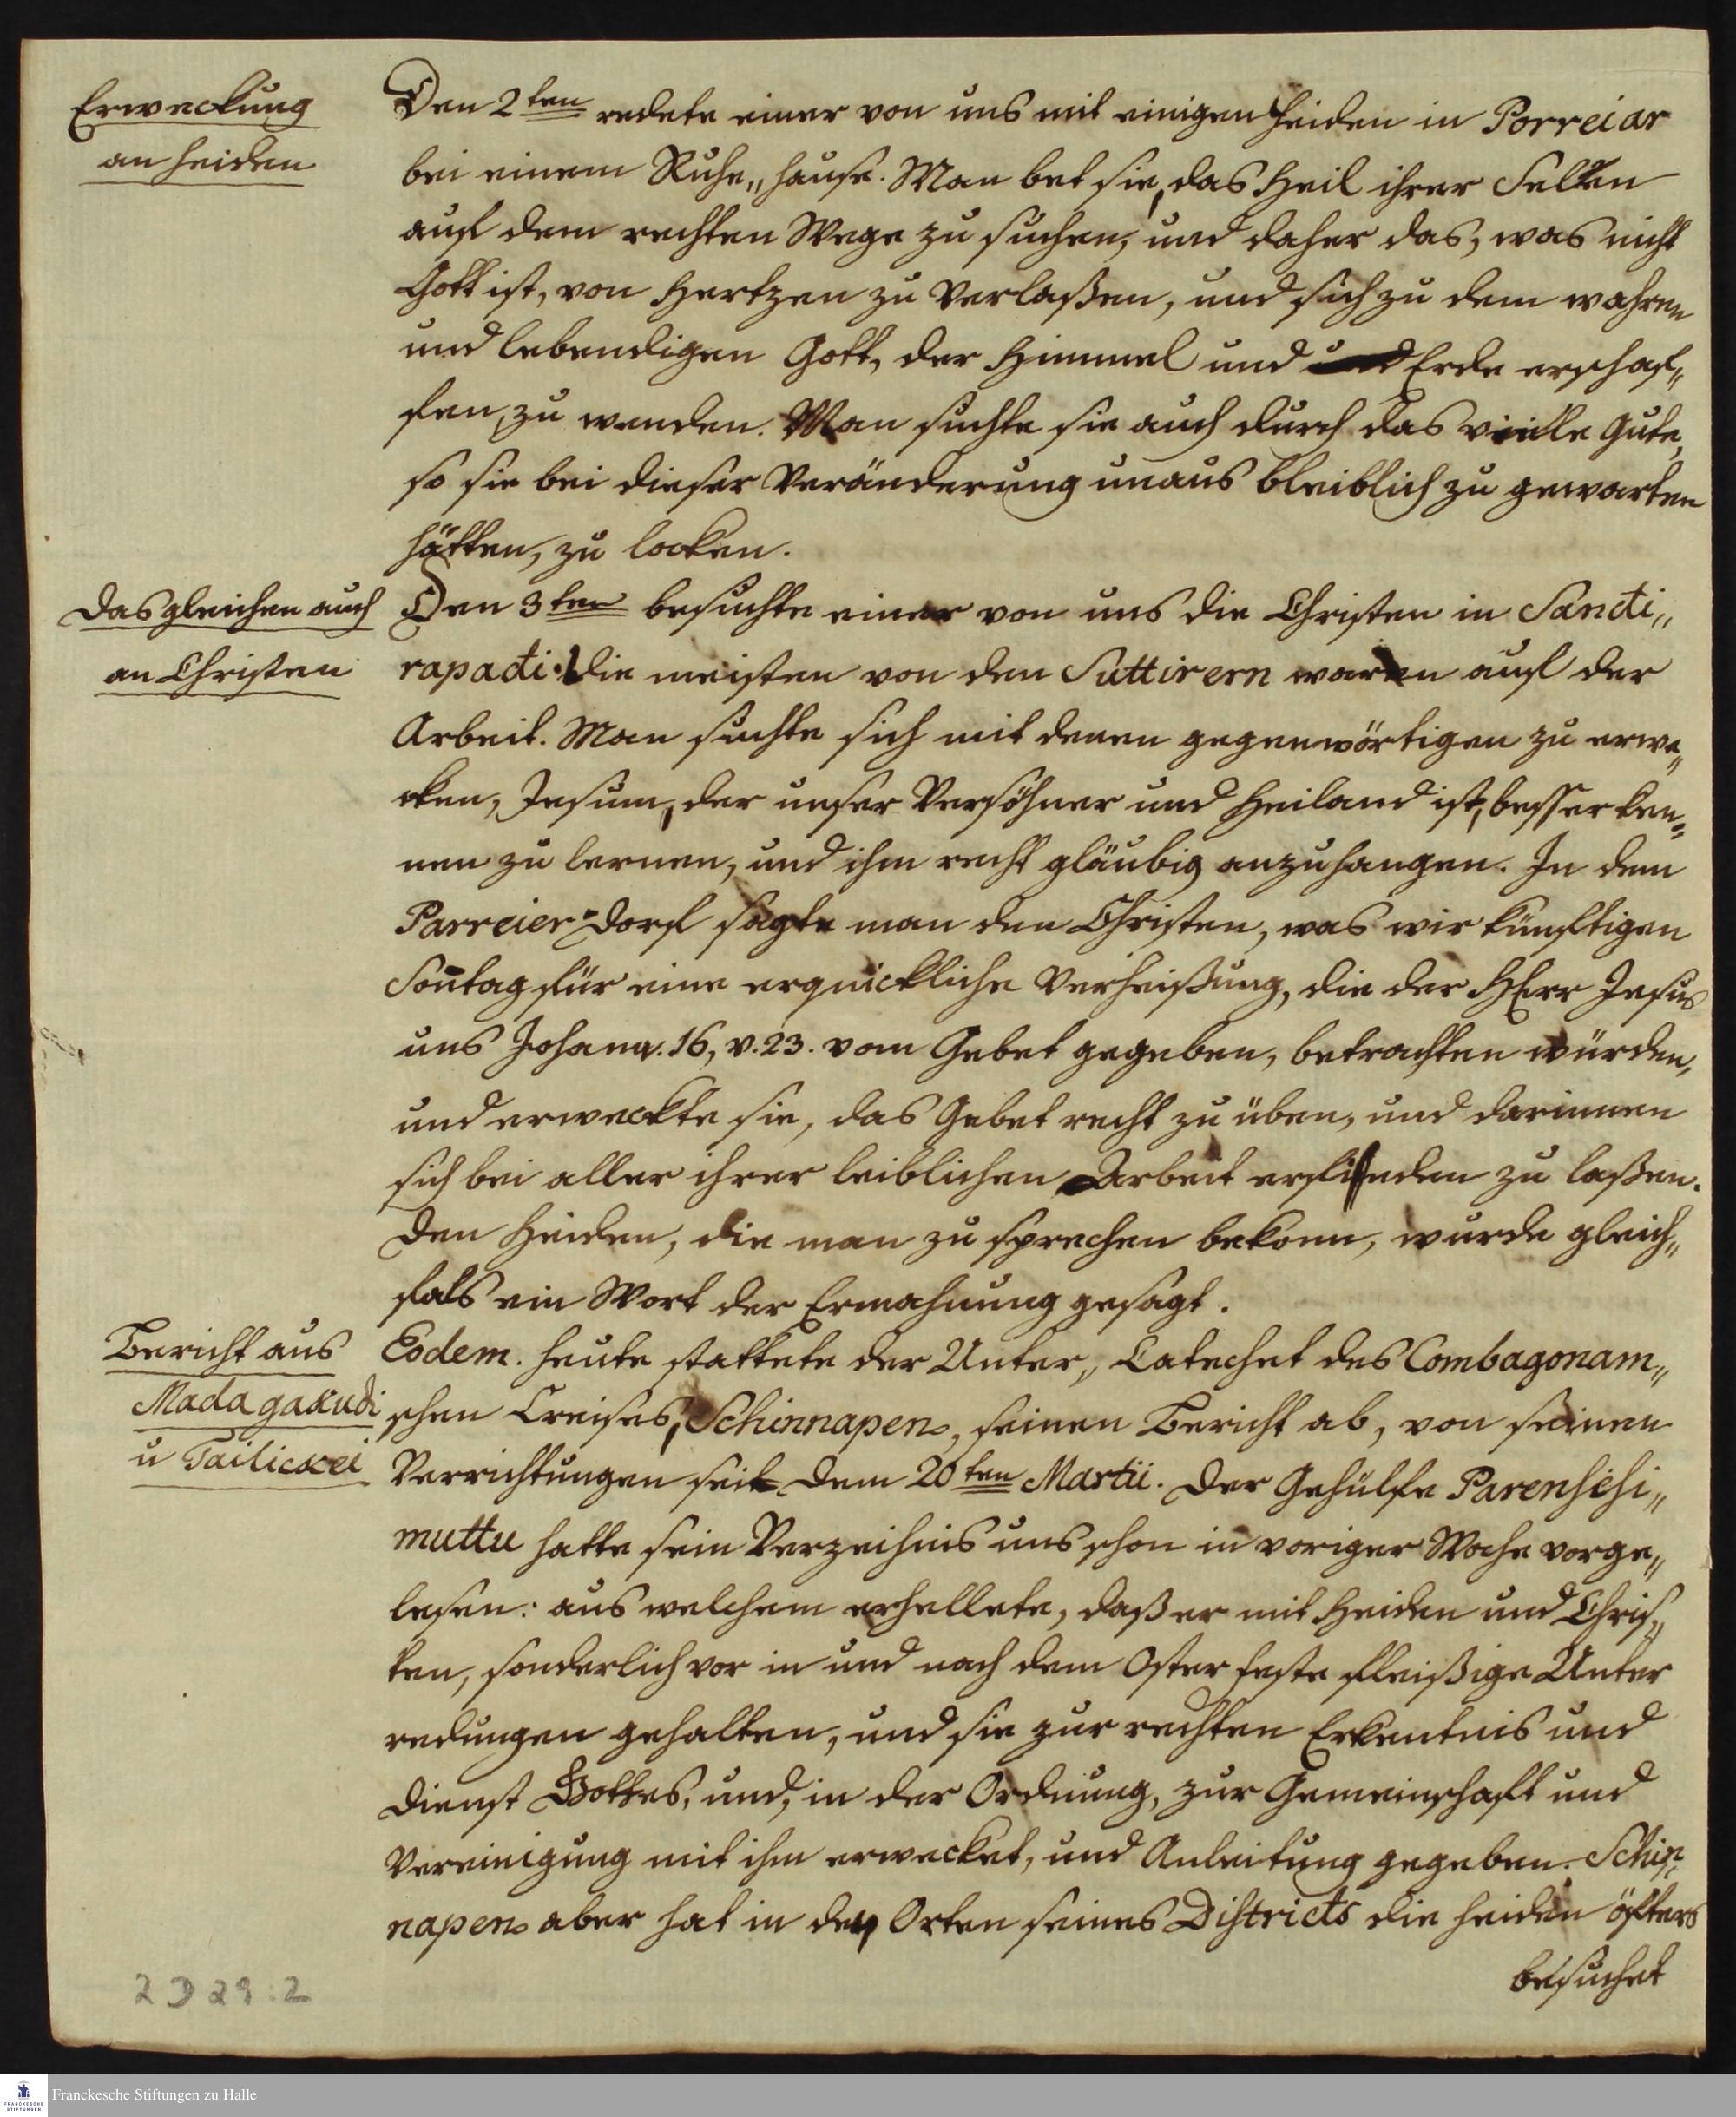 Erweckung
an Heiden
Den 2ten redete einer von uns mit einigen Heiden in Porreiar
bei einem Ruhe„hause. Man bat sie, das Heil ihrer Selen
auf dem rechten Wege zu suchen, und daher das, was nicht
Gott ist, von Hertzen zu verlaßen, und sich zu dem wahren
und lebendigen Gott, der Himmel und Erde erschaf„
fen, zu wenden. Man suchte sie auch durch das viele Gute,
so sie bei dieser Veränderung unaus bleiblich zu gewarten
hätten, zu locken.
Dasgleichen auch
an Christen
Den 3ten besuchte einer von uns die Christen in Sandi„
rapadi. Die meisten von den Suttirern waren auf der
Arbeit. Man suchte sich mit denen gegenwärtigen zu erwe„
cken, Jesum, der unser Versöhner und Heiland ist, besser ken„
nen zu lernen, und ihm recht gläubig anzuhangen. In dem
Parreier-Dorf sagte man den Christen, was wir künftigen
Sontag für eine erquickliche Verheißung, die der HErr Jesus
uns Johann. 16, v. 23. vom Gebet gegeben, betrachten würden,
und erweckte sie, das Gebet recht zu üben, und darinnen
sich bei aller ihrer leiblichen Arbeit erfinden zu laßen.
Den Heiden, die man zu sprechen bekam, wurde gleich„
fals ein Wort der Ermahnung gesagt.
Bericht aus
Madagakudi
u Tailickei
Eodem. Heute stattete der Unter„Catechet des Combagonam„
schen Creises, Schinnapen, seinen Bericht ab, von seinen
Verrichtungen seit dem 20ten Martii. Der Gehülfe Parenschi„
muttu hatte sein Verzeihnis uns schon in voriger Woche vorge„
lesen: aus welchem erhellete, daß er mit Heiden und Chris„
ten, sonderlich vor in und nach dem Oster feste fleißige Unter
redungen gehalten, und sie zur rechten Erkentnis und
Dienst Gottes, und, in der Ordnung, zur Gemeinschaft und
Vereinigung mit ihm erwecket, und Anleitung gegeben. Schin„
napen aber hat in den Orten seines Districts die Heiden öfters
besuchet
2 D 29:2
Franckesche Stiftungen zu Halle
FRANCKESCHE
STIFTUNGEN